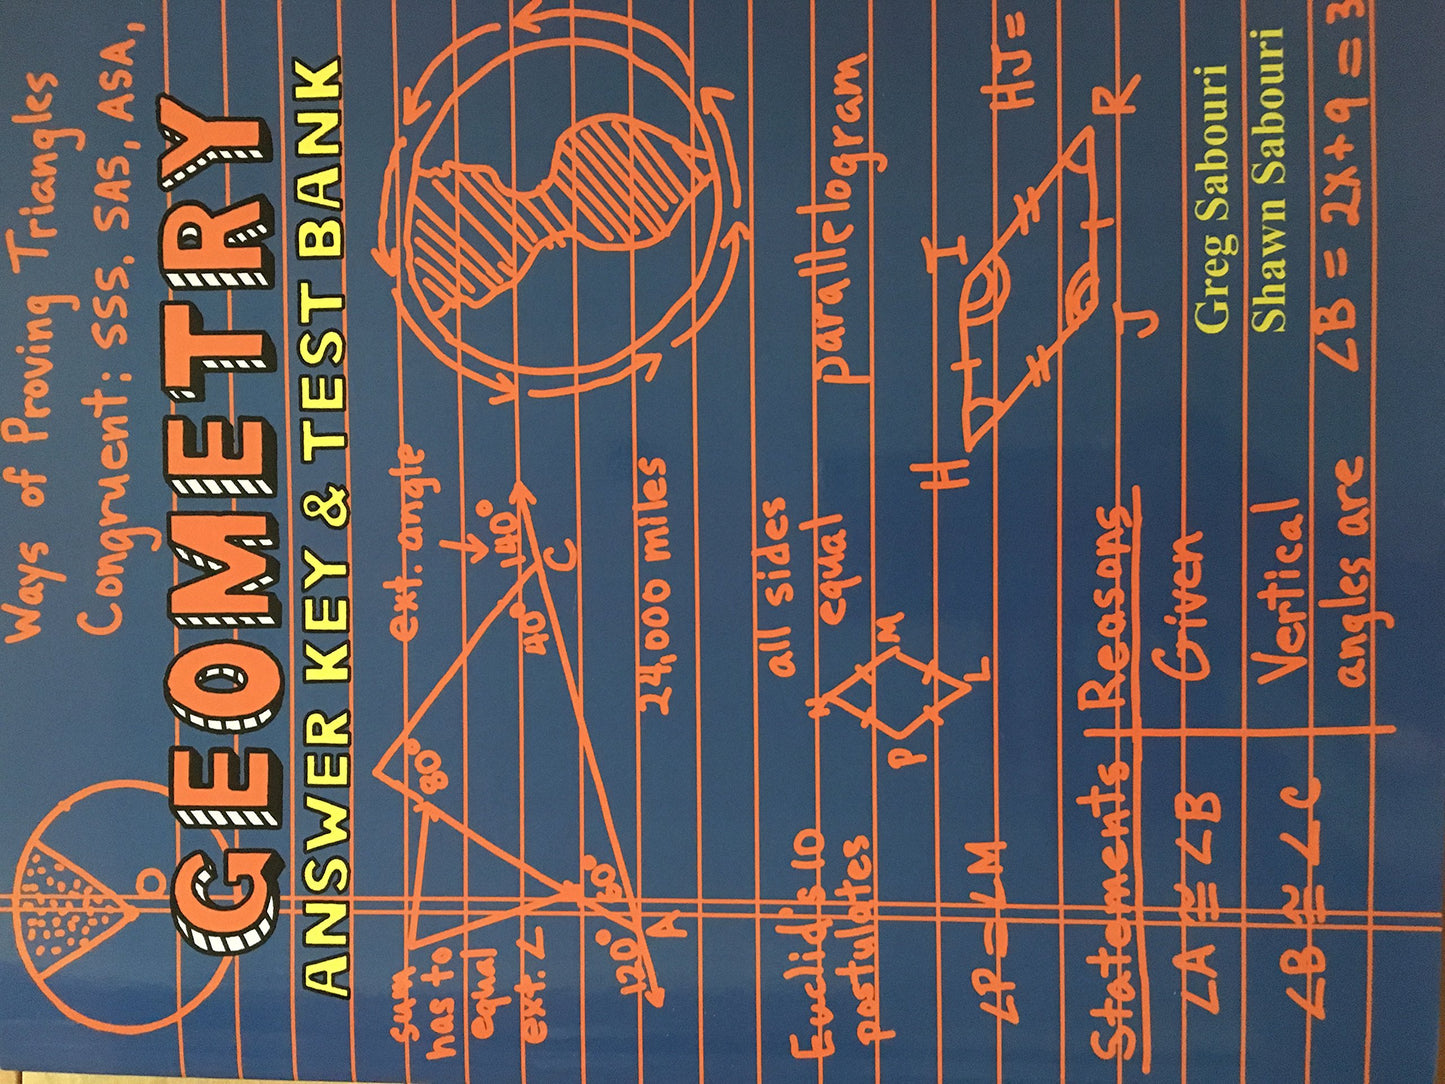 Ways of Proving Triangles
Congruent: SSS. SAS, ASA,
D
GEOMETRY
ANSWER KEY & TEST BANK
sum
has to
equal
ext. ∠
80°
ext. angle
140°
40°
C
60°
120°
A
24,000 miles
Euclid's 10
postulates
all sides
equal
parallelogram
N
M
P
L
∠P = ∠M
H
I
J
R
HJ =
Statements
Reasons
∠A ≅ ∠B
Given
∠B ≅ ∠C
Vertical
angles are
Greg Sabouri
Shawn Sabouri
∠B = 2x + 9 = 3